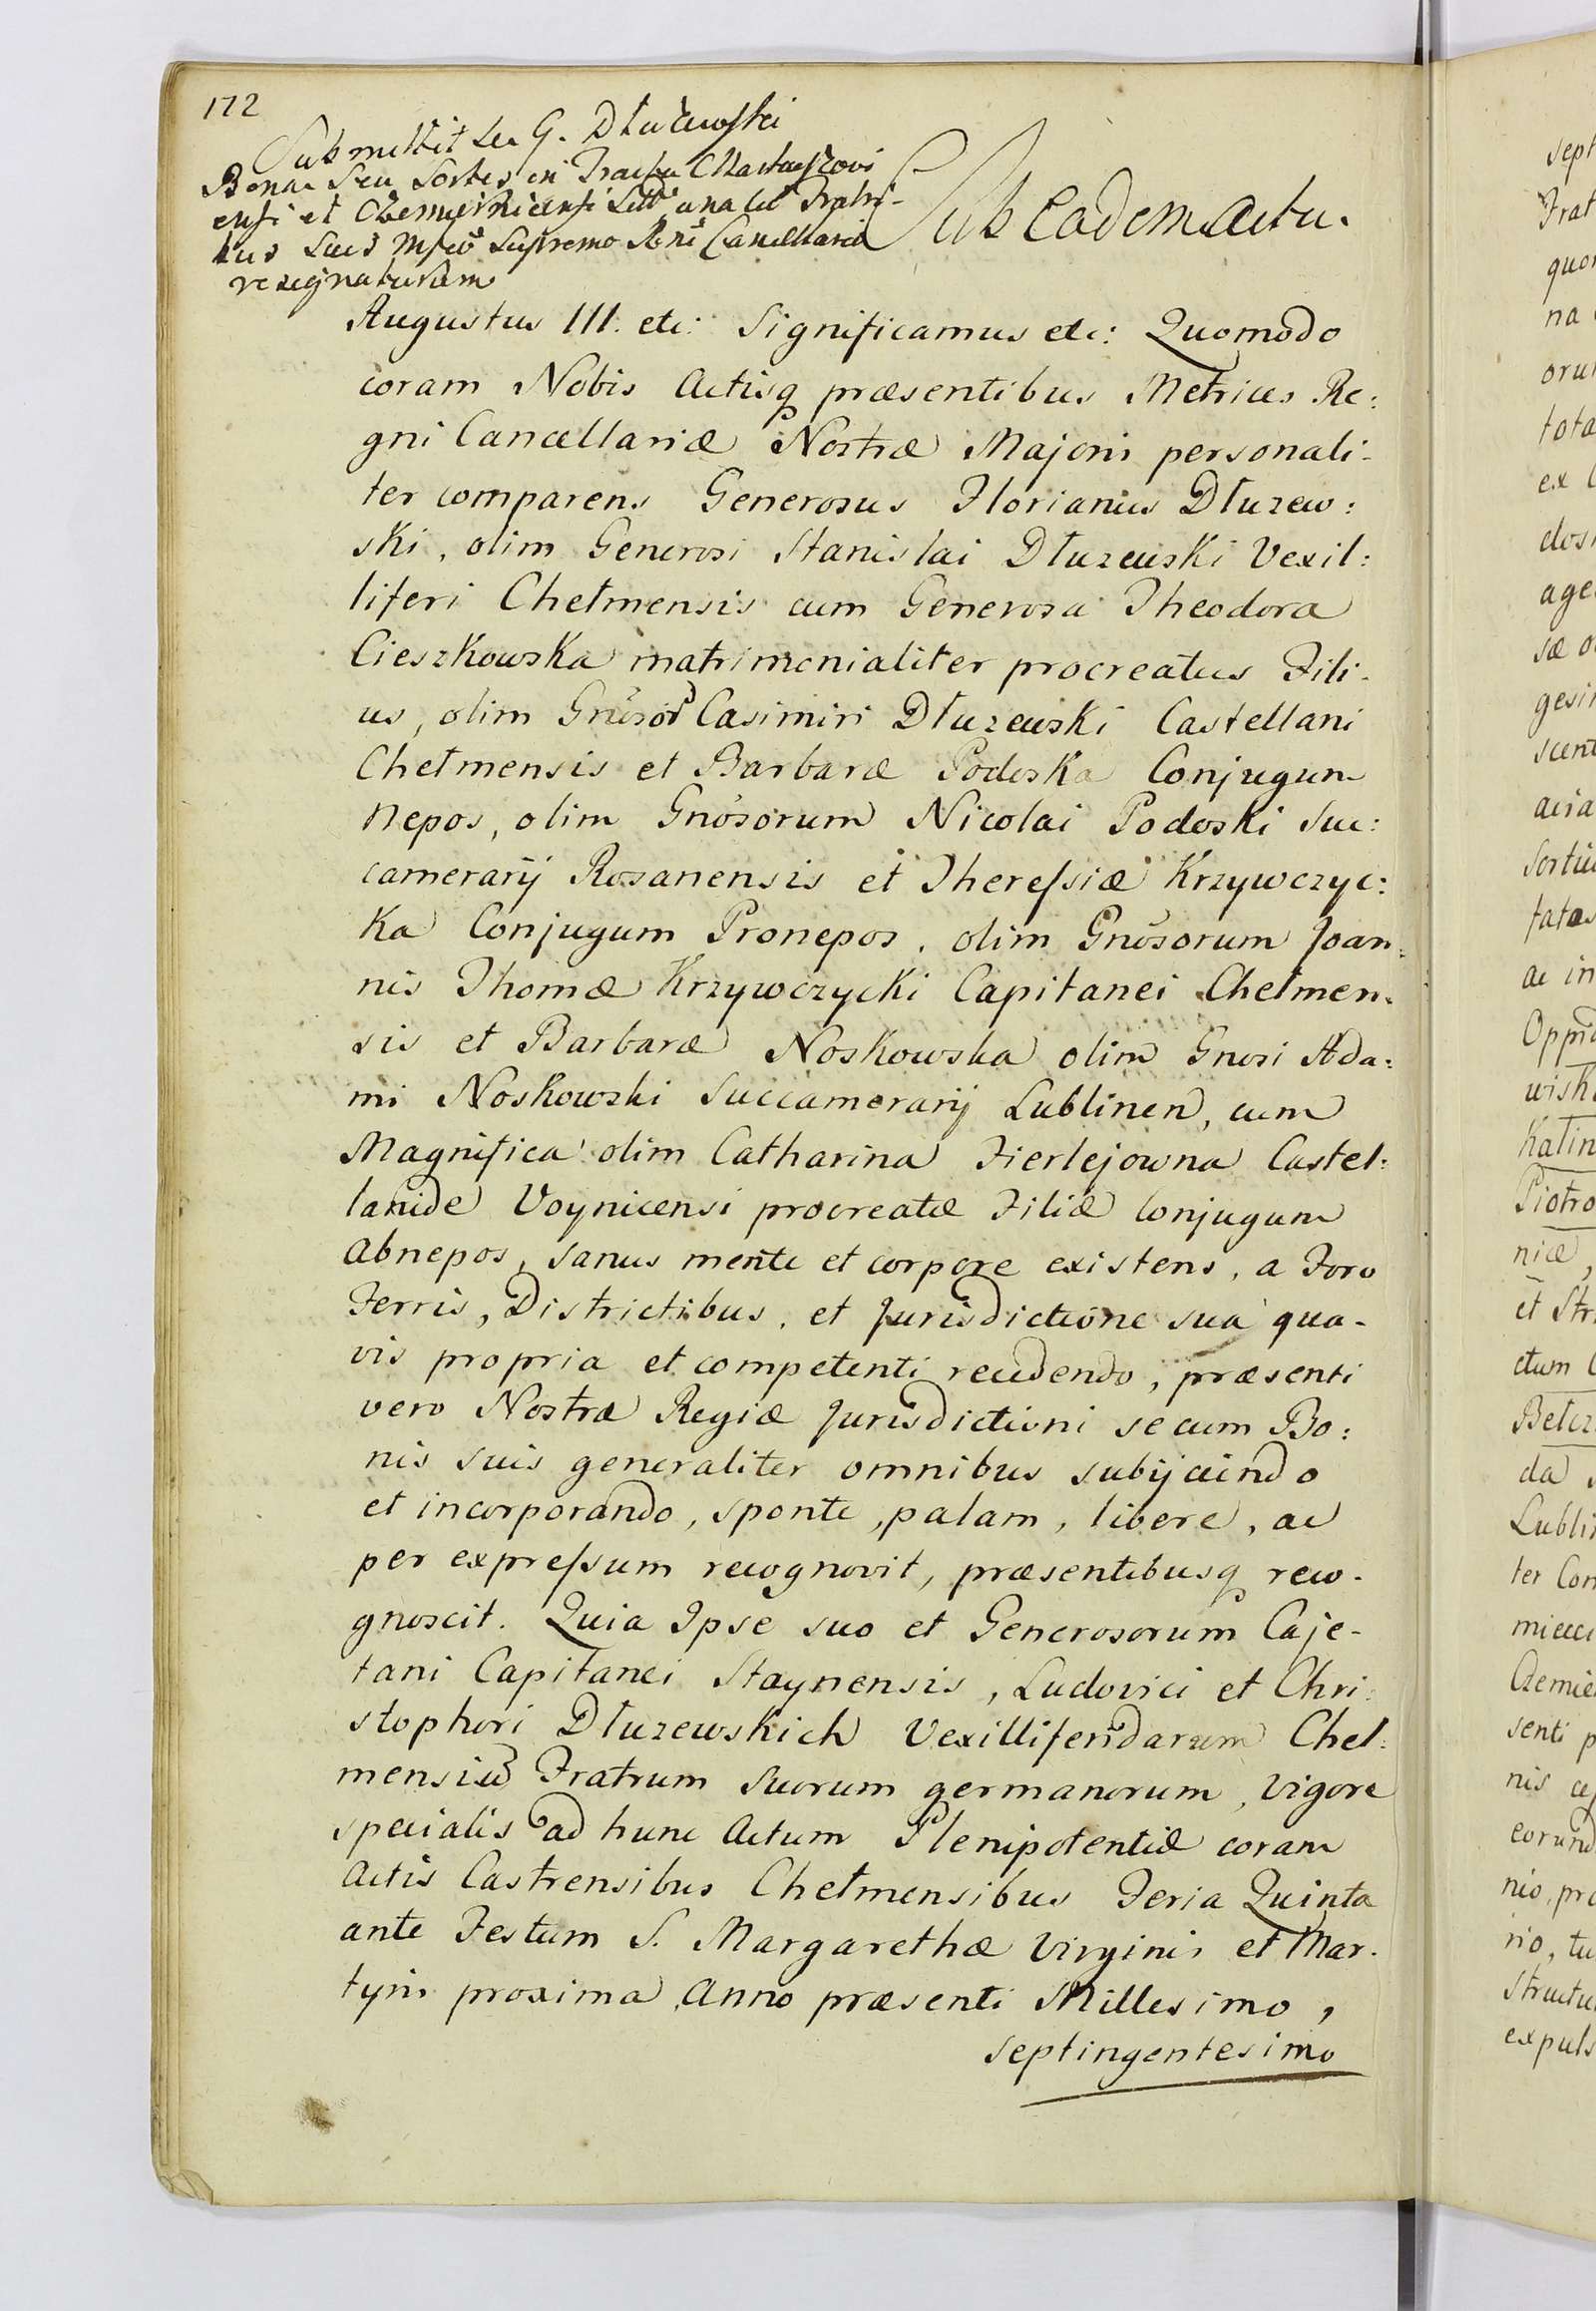 172
Submittit se G. Dłużewski
Bona seu Sortes in Tractu
ensi et sitt: una cū Fratri-
bus suis Mfco Supremo Rni Cancellario
resignaturum
Sub eodem actu.
Augustus III. etc: Significamus etc: Quomodo
coram Nobis Actisq præsentibus Metrices Re:
gni Cancellariæ Nostræ Majoris personali-
ter comparens Generosus Florianus Dłuzew:
ski, olim Generosi Stanislai Dłuzewski Vexil:
liferi Chełmensis cum Generosa Theodora
Cieszkowska matrimonialiter procreatus Fili-
us, olim Gnrosor Casimiri Dłuzewski Castellani
Chełmensis et Barbaræ Podoska Conjugum
Nepos, olim Gnosorum Nicolai Podoski Suc:
camerarij Rozanensis et Theressiæ Krzywczyc:
ka Conjugum Pronepos, olim Gnosorum Joan:
nis Thomæ Krzywczycki Capitanei Chełmen-
sis et Barbaræ Noskowska olim Gnosi Ada:
mi Noskowski Succamerarij Lublinen, cum
Magnifica olim Catharina Fierlejowna Castel:
lanide Voynicensi procreatæ Filiæ Conjugum
Abnepos, sanus mente et corpore existens, a Foro
Terris, Districtibus, et Jurisdictione sua qua-
vis propria et competenti recedendo, præsenti
vero Nostræ Regiæ Jurisdictioni se cum Bo:
nis suis generaliter omnibus subijciendo
et incorporando, sponte, palam, libere, ac
per expressum recognovit, præsentibusq reco-
gnoscit. Quia Ipse suo et Generosorum Caje-
tani Capitanei Staynensis, Ludovici et Chri:
stophori Dłuzewskich Vexilliferidarum Chel:
mensiū Fratrum Suorum germanorum, vigore
specialis ad hunc Actum Plenipotentiæ coram
Actis Castrensibus Chełmensibus Feria Quinta
ante Festum S. Margarethæ Virginis et Mar-
tyris proxima Anno præsenti Millesimo,
septingentesimo
sept
Frat
quor
na
oru
tota
ex
dos
age
sæ
gesi
scent
acia
Sortiu
tatas
ac in
Oppid
wisk
Kalin
Piotro
niæ,
et Str
ctum
Bełcz
da
Lubli
ter Con
miecci
Czemie
senti p
nis
eorund
nio, pro
rio, tu
Structu
expuls